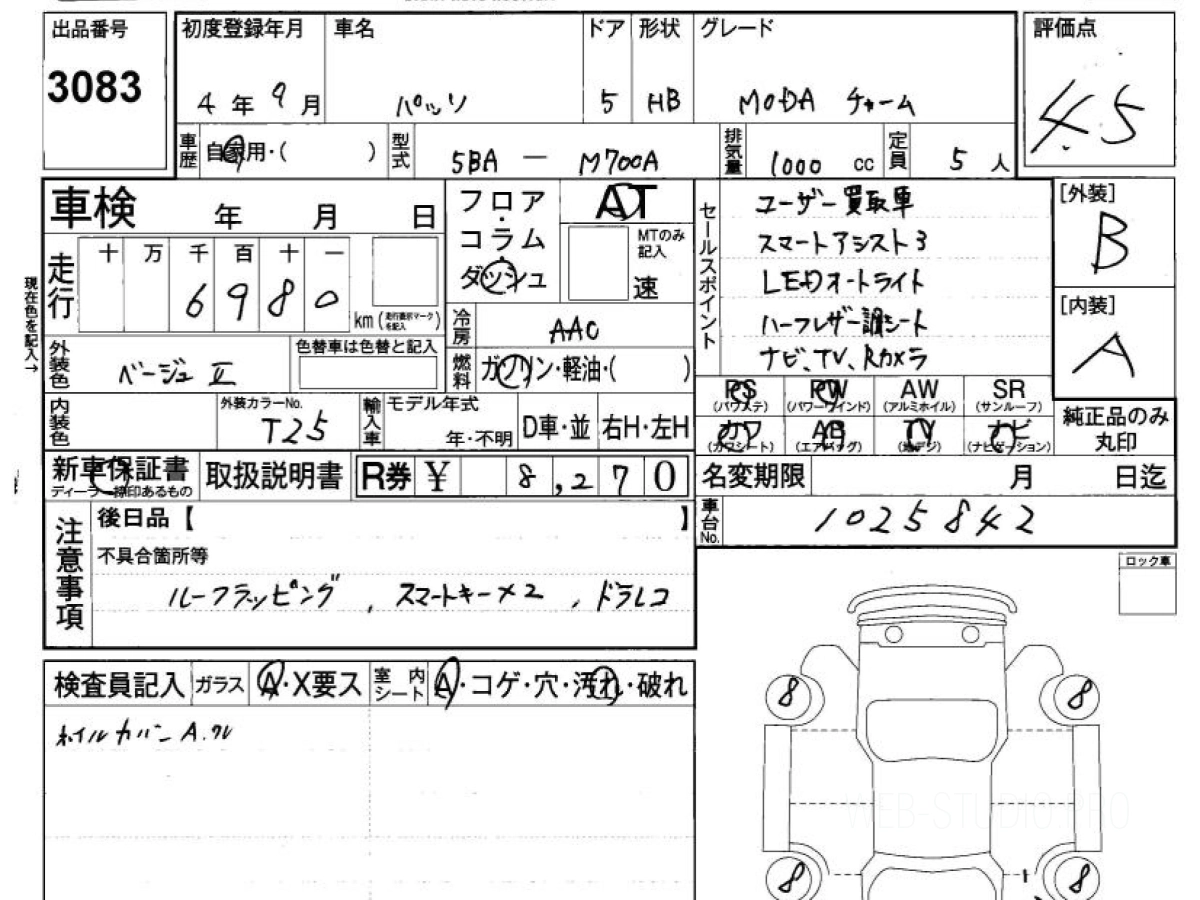 出品番号 初度登録年月 車名 ドア 形状 グレード 評価点
3083 4年9月 パッソ 5 HB MODA チャーム 4.5
車歴 自家用・( ) 型式 5BA - M700A 排気量 1000 cc 定員 5人
車検 年 月 日
フロア・コラム・ダッシュ
AT
MTのみ記入
速
セールスポイント
ユーザー買取車
スマートアシスト3
LEDオートライト
ハーフレザー調シート
ナビ、TV、Rカメラ
[外装]
B
[内装]
A
現在色を記入→
走行 十 万 千 百 十 一
6 9 8 0 km (走行表示マークを記入)
冷房 AAC
外装色 ベージュ II 色替車は色替と記入
燃料 ガソリン・軽油・( )
PS (パワステ) PW (パワーウインド) AW (アルミホイル) SR (サンルーフ)
カワ (カワシート) AB (エアバッグ) TV (地デジ) ナビ (ナビゲーション)
純正品のみ丸印
内装色 外装カラーNo. T25 輸入車 モデル年式 年・不明 D車・並 右H・左H
新車保証書 ディーラー捺印あるもの 取扱説明書 R券 ¥ 8,270
名変期限 月 日迄
車台No. 1025842
注意事項
後日品【 】
不具合箇所等
ルーフラッピング , スマートキー×2 , ドラレコ
ロック車
検査員記入 ガラス A・X要ス 室内シート A・コゲ・穴・汚れ・破れ
ホイルカバー A.ワレ
8 8
WEB-STUDIO.PRO
8 8